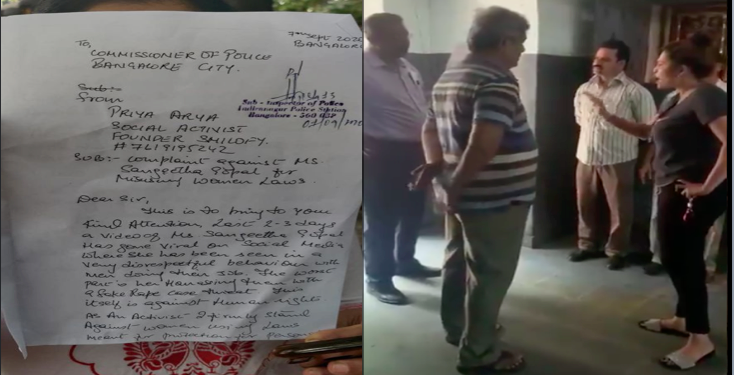 7th Sept 2020
BANGALORE
To,
COMMISSIONER OF POLICE
BANGALORE CITY.
Sub:-
From
PRIYA ARYA
SOCIAL ACTIVIST
FOUNDER SMILOFY.
#7619195242
Sub - Inspector of Police
Police Station
Bangalore - 560
SUB:- Complaint against MS.
Sangeetha Gopal for
Misusing Women Laws.
Dear Sir,
This is to bring to your
kind Attention, Last 2-3 days
a video of Ms. Sangeetha Gopal
Has gone viral on Social Media
where She has been seen in a
very disrespectful behaviour with
men doing their job. The worst
part is her Harassing them with
a fake Rape case threat. This
itself is against Human rights
As An Activist I firmly Stand
Against women using Laws
meant for protection for